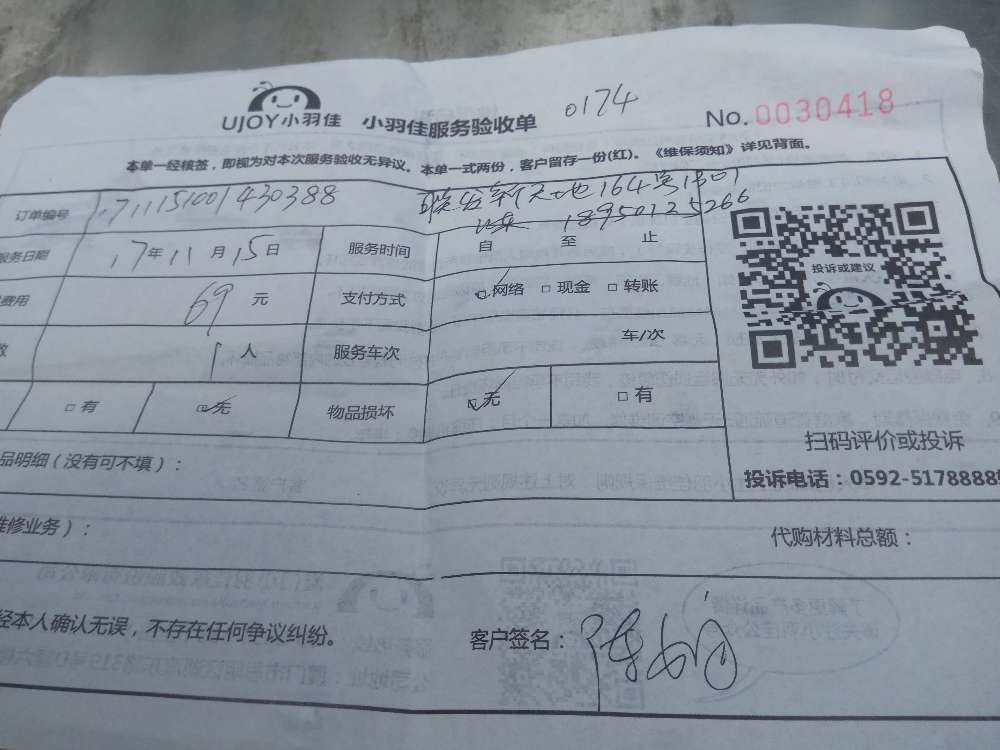 UJOY小羽佳 小羽佳服务验收单 0174 No.0030418
本单一经核签，即视为对本次服务验收无异议。本单一式两份，客户留存一份(红)。《维保须知》详见背面。
订单编号 711151001430388 联发新天地164号1801
18950125266
服务日期 17年11月15日 服务时间 自 至 止
费用 69元 支付方式 □网络 □现金 □转账
数 1人 服务车次 车/次
□有 □无 物品损坏 □无 □有
投诉或建议
扫码评价或投诉
投诉电话：0592-5178888
品明细（没有可不填）：
维修业务）：
代购材料总额：
经本人确认无误，不存在任何争议纠纷。
客户签名：